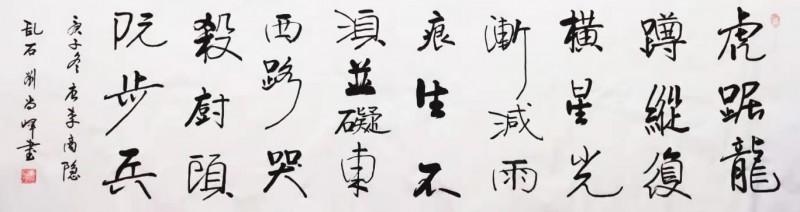 虎踞龍
蹲縱復
横星光
漸減雨
痕生不
須並礙東
西路哭
殺厨頭
阮步兵
庚子冬唐李商隐
乱石 劉尚 書